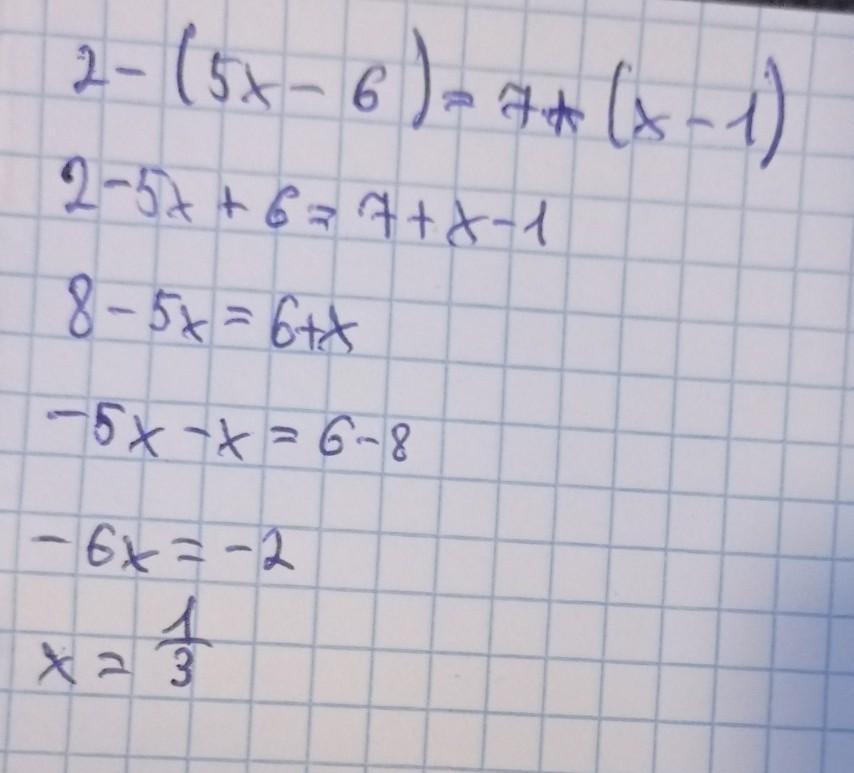 2 - (5x - 6) = 7 + (x - 1)
2 - 5x + 6 = 7 + x - 1
8 - 5x = 6 + x
-5x - x = 6 - 8
-6x = -2
x = 1/3